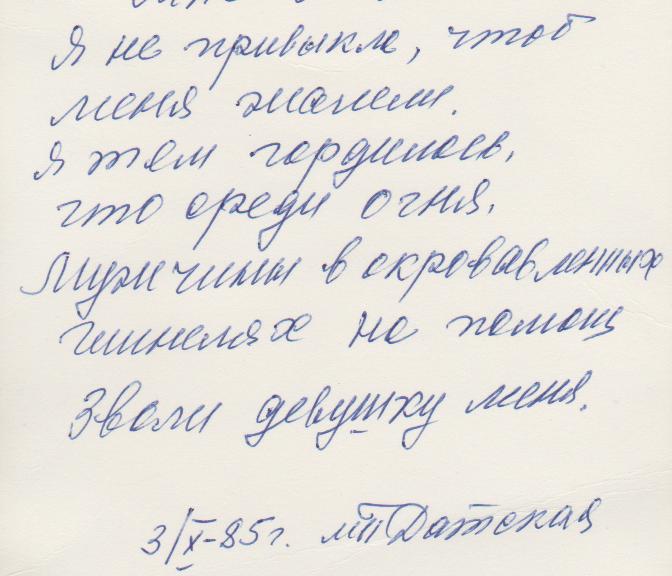 Я не привыкла, чтоб
меня жалели.
Я тем гордилась,
что среди огня.
Мужчины в окровавленных
шинелях на помощ
Звали девушку меня.
3/X-85г. МП Датская